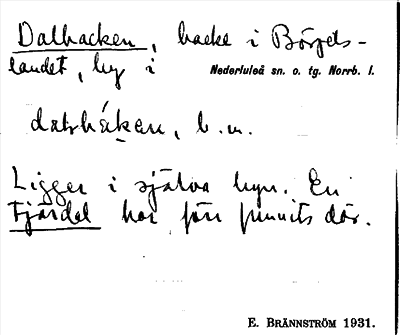 Dalbacken, backe i Börjels-
landet, by i Nederluleå sn. o. tg. Norrb. l.
b. m.
Ligger i själva byn. En
Fjärdel har förr funnits där.
E. BRÄNNSTRÖM 1931.